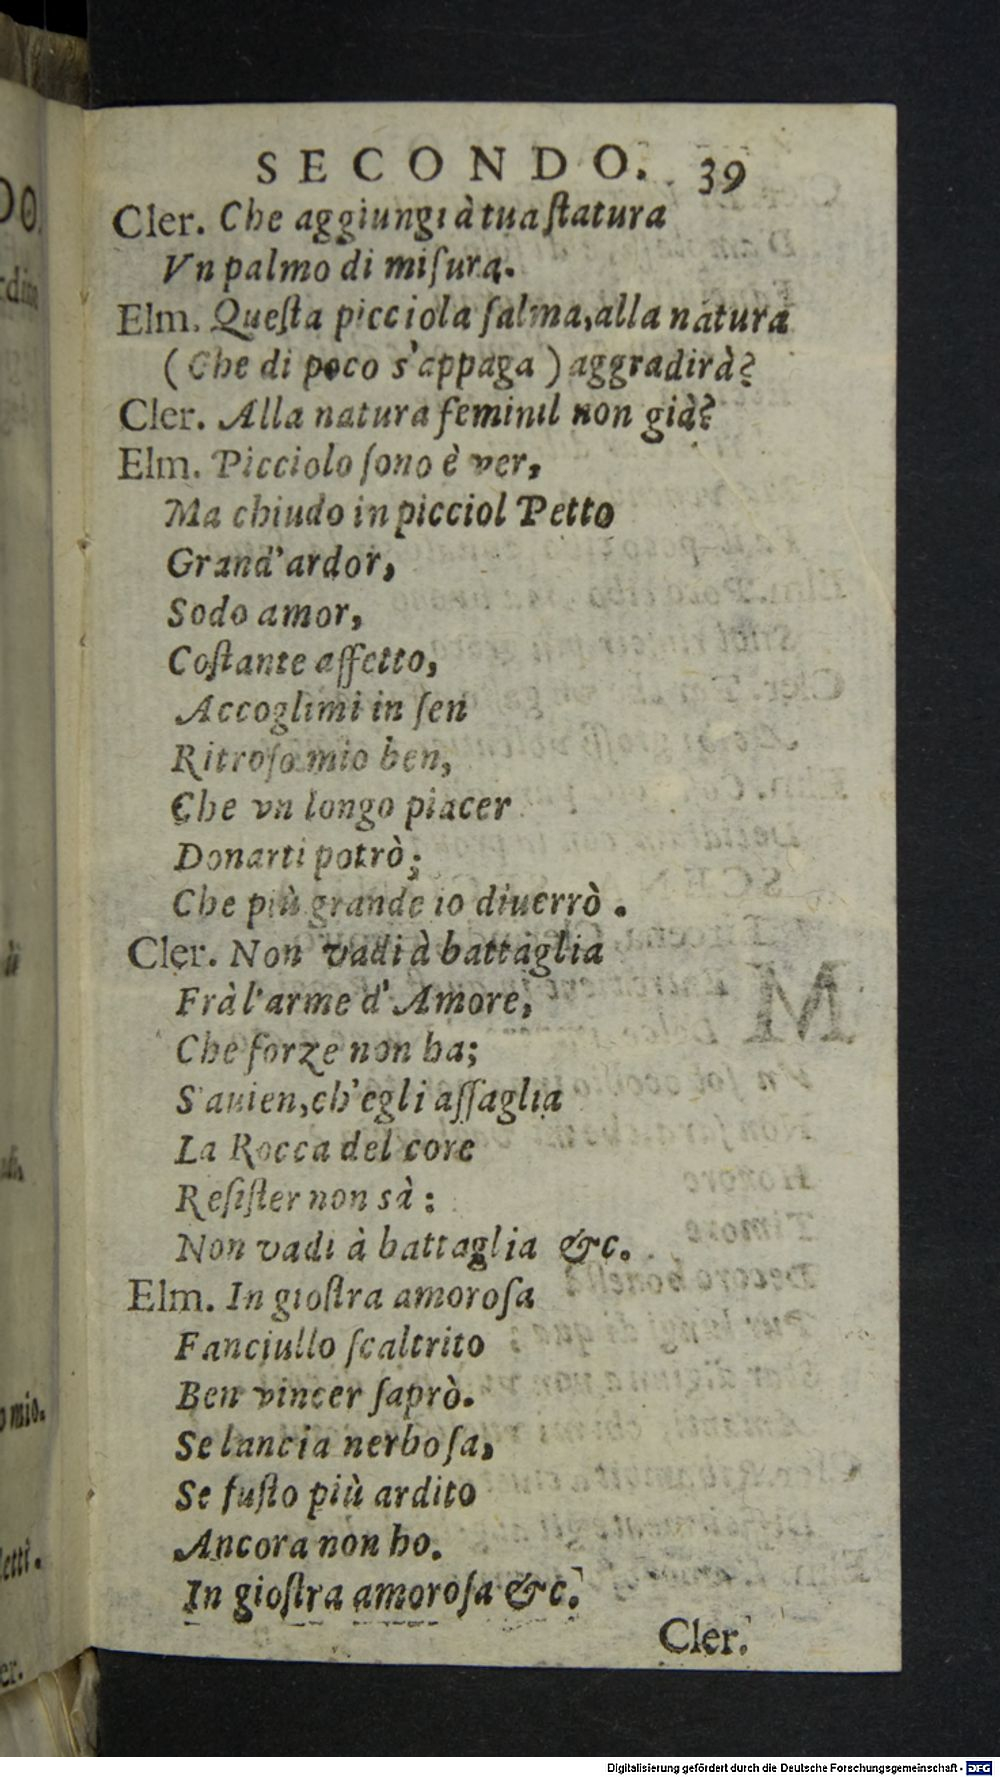 SECONDO. 39
Cler. Che aggiungi à tua ſtatura
Vn palmo di miſura.
Elm. Queſta picciola ſalma, alla natura
( Che di poco s'appaga ) aggradirà?
Cler. Alla natura feminil non già?
Elm. Picciolo ſono è ver,
Ma chiudo in picciol Petto
Grand' ardor,
Sodo amor,
Coſtante affetto,
Accoglimi in ſen
Ritroſo mio ben,
Che vn longo piacer
Donarti potrò;
Che più grande io diuerrò .
Cler. Non vadi à battaglia
Frà l'arme d' Amore,
Che forze non ha;
S'auien, ch'egli aſſaglia
La Rocca del core
Reſiſter non sà :
Non vadi à battaglia &c.
Elm. In gioſtra amoroſa
Fanciullo ſcaltrito
Ben vincer ſaprò.
Se lancia nerboſa,
Se fuſto più ardito
Ancora non ho.
In gioſtra amoroſa &c.
Cler.
Digitalisierung gefördert durch die Deutsche Forschungsgemeinschaft - DFG